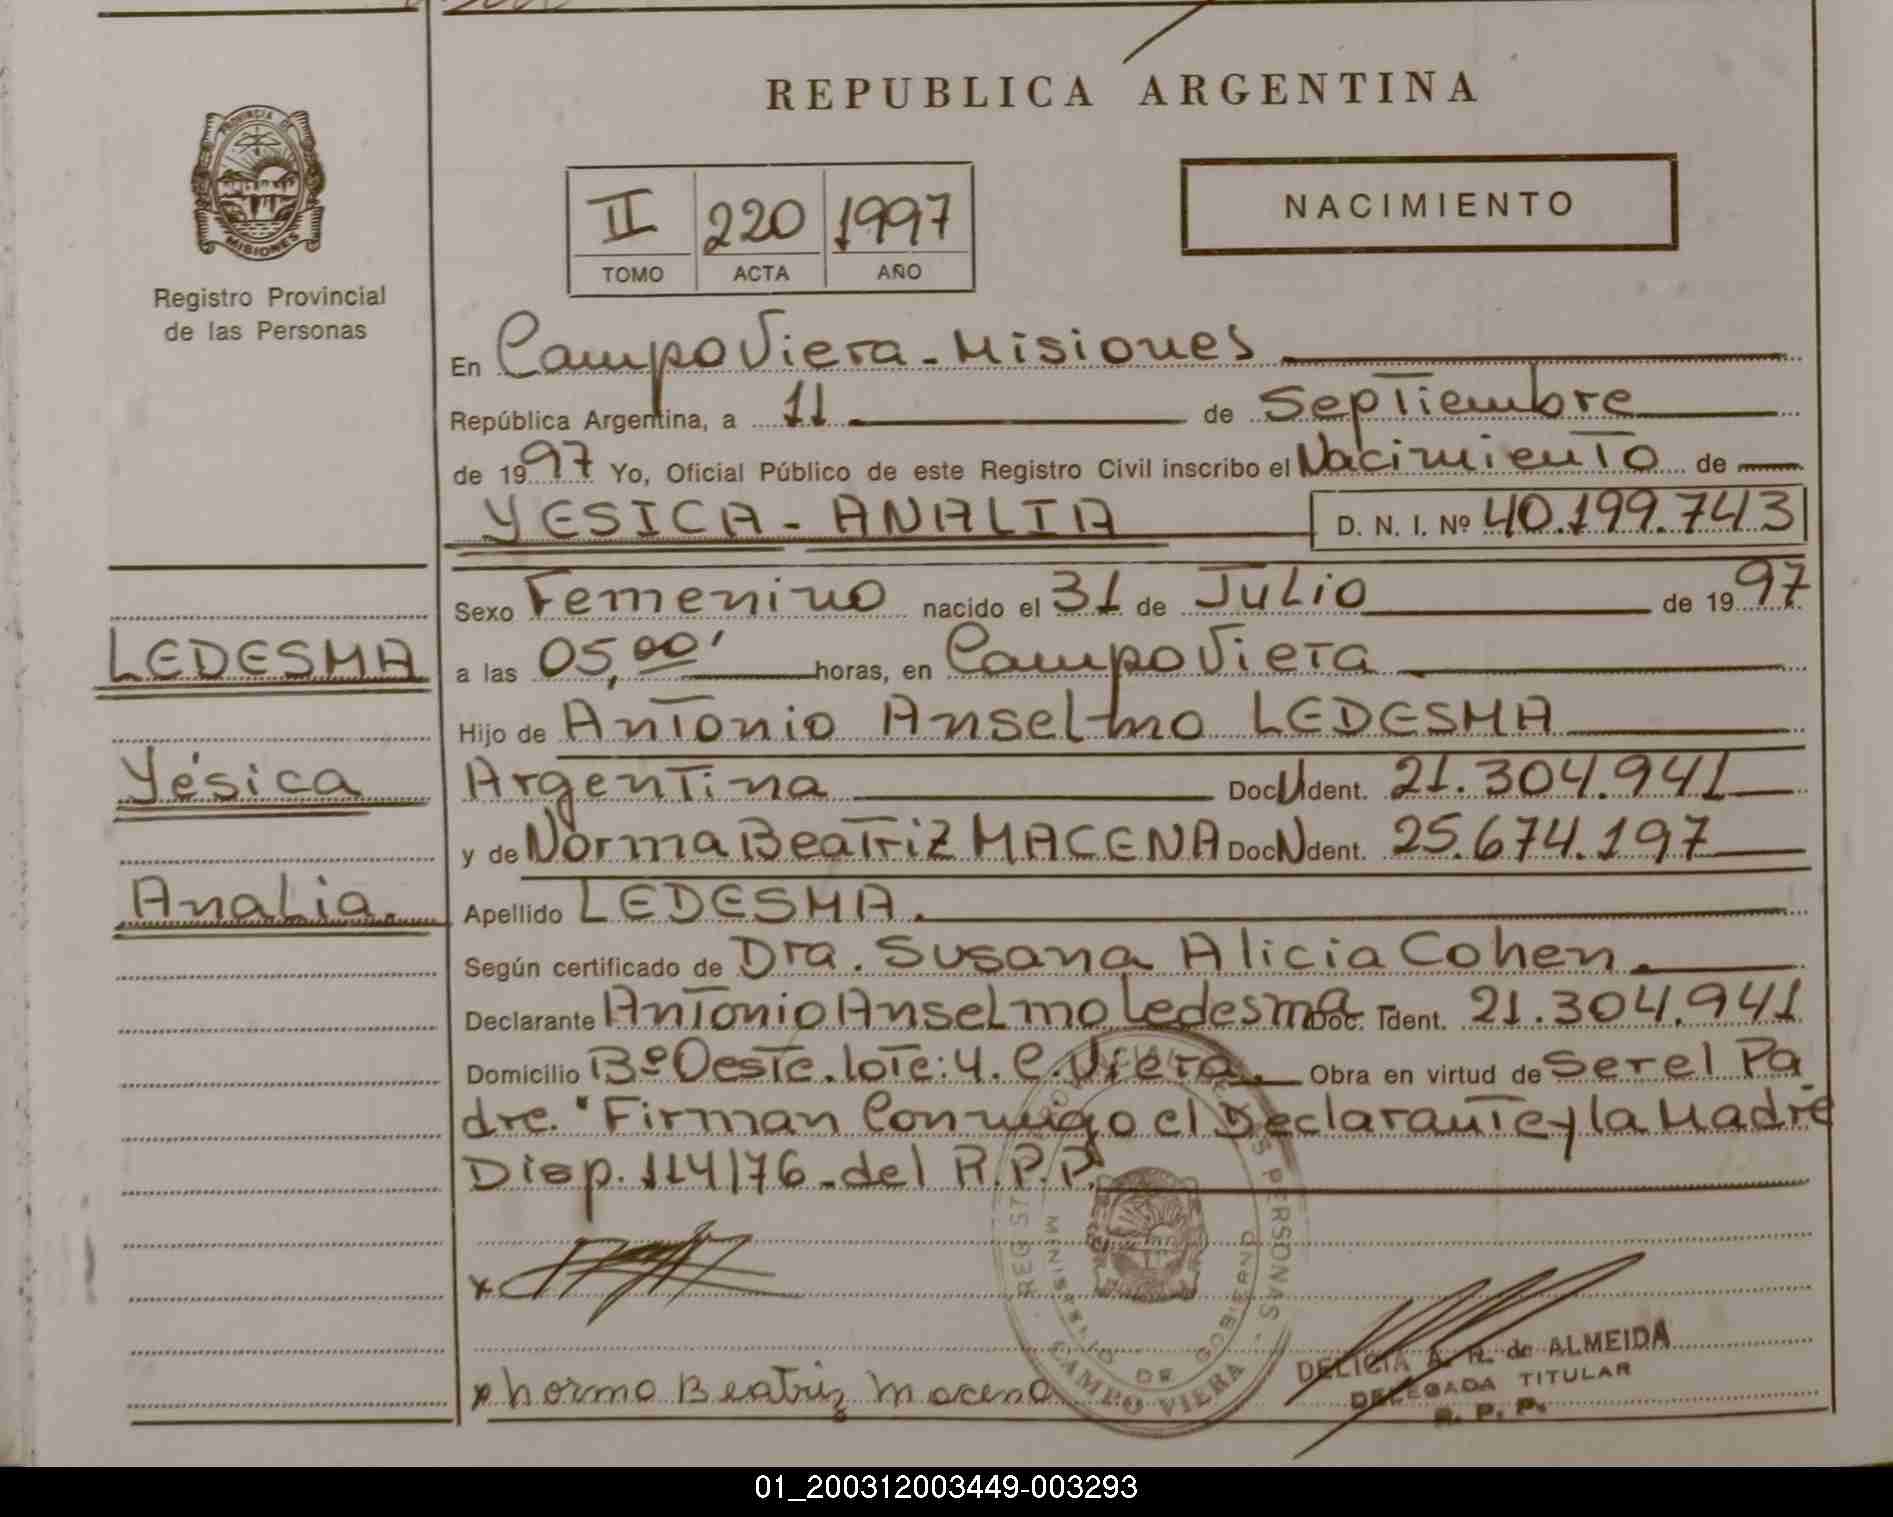 REPUBLICA ARGENTINA
PROVINCIA DE
MISIONES
Registro Provincial
de las Personas
II 220 1997
TOMO ACTA AÑO
NACIMIENTO
En Campo Viera - Misiones
República Argentina, a 11 de Septiembre
de 1997 Yo, Oficial Público de este Registro Civil inscribo el Nacimiento de
YESICA - ANALIA D. N. I. Nº 40.199.743
Sexo Femenino nacido el 31 de Julio de 1997
LEDESMA
a las 05,00' horas, en Campo Viera
Hijo de Antonio Anselmo LEDESMA
Yésica
Argentina Doc. U Ident. 21.304.941
y de Norma Beatriz MACENA Doc. N Ident. 25.674.197
Analia.
Apellido LEDESMA.
Según certificado de Dra. Susana Alicia Cohen.
Declarante Antonio Anselmo Ledesma Doc. Ident. 21.304.941
Domicilio Bº Oeste. lote: 4. C. Viera. Obra en virtud de Ser el Pa
dre. "Firman Conmigo el Declarante y la Madre
Disp. 114/76 - del R.P.P.
REGISTRO PERSONAS
MINISTERIO DE GOBIERNO
CAMPO VIERA
x
x Norma Beatriz Macena
DELICIA A. R. de ALMEIDA
DELEGADA TITULAR
R. P. P.
01_200312003449-003293